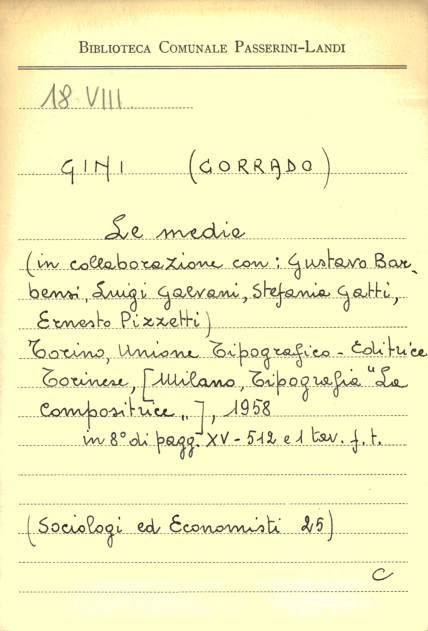 BIBLIOTECA COMUNALE PASSERINI-LANDI
18 VIII
GINI (CORRADO)
Le medie
(in collaborazione con: Gustavo Bar-
bensi, Luigi Galvani, Stefania Gatti,
Ernesto Pizzetti)
Torino, Unione Tipografico-Editrice
Torinese, [Milano, Tipografia "La
Compositrice"], 1958
in 8° di pagg. XV-512 e 1 tav. f. t.
(Sociologi ed Economisti 25)
C